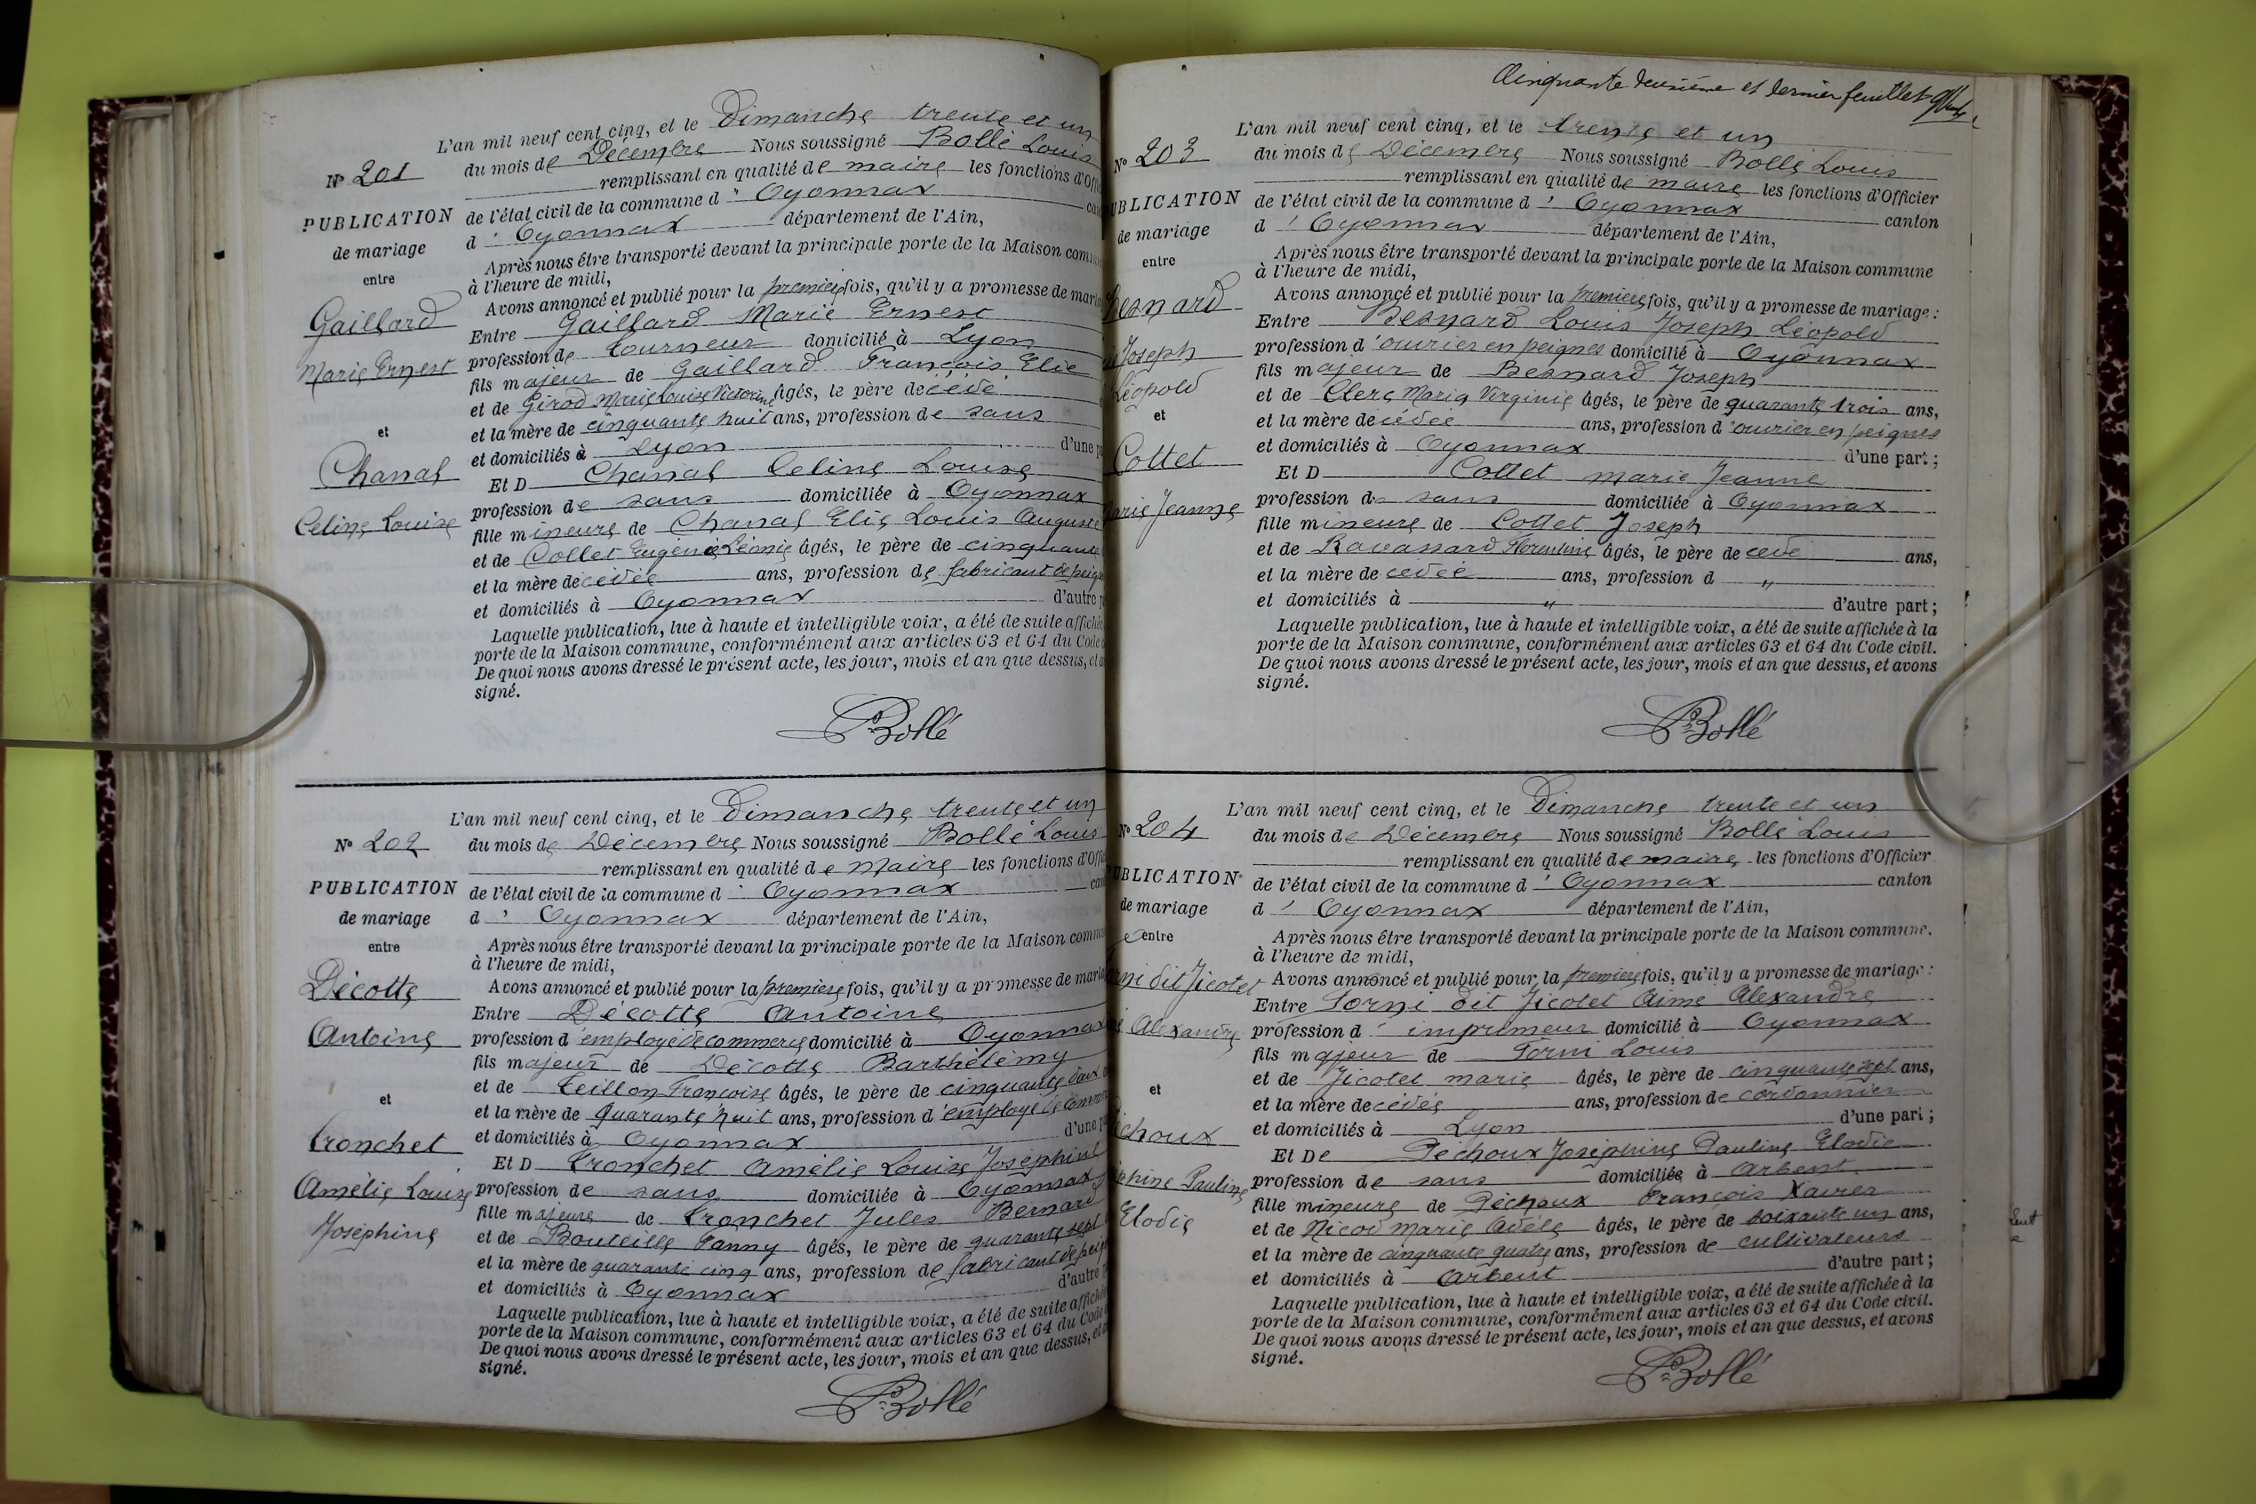 N° 201
PUBLICATION
de mariage
entre
Gaillard
Marie Ernest
et
Chanal
Celine Louise
L'an mil neuf cent cinq, et le Dimanche trente et un
du mois de Décembre Nous soussigné Bollé Louis
remplissant en qualité de maire les fonctions d'Offi
de l'état civil de la commune d' Oyonnax can
d' Oyonnax département de l'Ain,
Après nous être transporté devant la principale porte de la Maison comm
à l'heure de midi,
Avons annoncé et publié pour la première fois, qu'il y a promesse de maria
Entre Gaillard Marie Ernest
profession de tourneur domicilié à Lyon
fils majeur de Gaillard François Elie
et de Girod Marie Louise Victorine âgés, le père de cédé
et la mère de cinquante huit ans, profession de sans
et domiciliés à Lyon d'une p
Et D Chanal Celine Louise
profession de sans domiciliée à Oyonnax
fille mineure de Chanal Elie Louis Auguste
et de Collet Eugénie Léonie âgés, le père de cinquante
et la mère de cédée ans, profession de fabricant de peign
et domiciliés à Oyonnax d'autre p
Laquelle publication, lue à haute et intelligible voix, a été de suite affichée
porte de la Maison commune, conformément aux articles 63 et 64 du Code
De quoi nous avons dressé le présent acte, les jour, mois et an que dessus, et
signé.
Bollé
N° 202
PUBLICATION
de mariage
entre
Décotte
Antoine
et
Tronchet
Amélie Louise
Joséphine
L'an mil neuf cent cinq, et le Dimanche trente et un
du mois de Décembre Nous soussigné Bollé Louis
remplissant en qualité de Maire les fonctions d'Offi
de l'état civil de la commune d' Oyonnax can
d' Oyonnax département de l'Ain,
Après nous être transporté devant la principale porte de la Maison commu
à l'heure de midi,
Avons annoncé et publié pour la première fois, qu'il y a promesse de maria
Entre Décotte Antoine
profession d'employé de commerce domicilié à Oyonnax
fils majeur de Décotte Barthélémy
et de Teillon Françoise âgés, le père de cinquante deux
et la mère de quarante huit ans, profession d'employé de comm
et domiciliés à Oyonnax d'une p
Et D Tronchet Amélie Louise Joséphine
profession de sans domiciliée à Oyonnax
fille majeure de Tronchet Jules Bernard
et de Bouteille Fanny âgés, le père de quarante sept
et la mère de quarante cinq ans, profession de fabricant de peign
et domiciliés à Oyonnax d'autre
Laquelle publication, lue à haute et intelligible voix, a été de suite affichée
porte de la Maison commune, conformément aux articles 63 et 64 du Code
De quoi nous avons dressé le présent acte, les jour, mois et an que dessus, et
signé.
Bollé
Cinquante deuxième et dernier feuillet
N° 203
UBLICATION
de mariage
entre
Besnard
Joseph
Léopold
et
Cottet
Marie Jeanne
L'an mil neuf cent cinq, et le trente et un
du mois de Décembre Nous soussigné Bollé Louis
remplissant en qualité de maire les fonctions d'Officier
de l'état civil de la commune d' Oyonnax canton
d' Oyonnax département de l'Ain,
Après nous être transporté devant la principale porte de la Maison commune
à l'heure de midi,
Avons annoncé et publié pour la première fois, qu'il y a promesse de mariage :
Entre Besnard Louis Joseph Léopold
profession d'ouvrier en peignes domicilié à Oyonnax
fils majeur de Besnard Joseph
et de Clerc Maria Virginie âgés, le père de quarante trois ans,
et la mère de cédée ans, profession d'ouvrier en peignes
et domiciliés à Oyonnax d'une part ;
Et D Cottet Marie Jeanne
profession de sans domiciliée à Oyonnax
fille mineure de Cottet Joseph
et de Ravassard Florentine âgés, le père de cédé ans,
et la mère de cédée ans, profession d "
et domiciliés à " d'autre part ;
Laquelle publication, lue à haute et intelligible voix, a été de suite affichée à la
porte de la Maison commune, conformément aux articles 63 et 64 du Code civil.
De quoi nous avons dressé le présent acte, les jour, mois et an que dessus, et avons
signé.
Bollé
N° 204
UBLICATION
de mariage
entre
rni dit Jicotet
Alexandre
et
échoux
phine Pauline
Elodie
L'an mil neuf cent cinq, et le Dimanche trente et un
du mois de Décembre Nous soussigné Bollé Louis
remplissant en qualité de maire les fonctions d'Officier
de l'état civil de la commune d' Oyonnax canton
d' Oyonnax département de l'Ain,
Après nous être transporté devant la principale porte de la Maison commune.
à l'heure de midi,
Avons annoncé et publié pour la première fois, qu'il y a promesse de mariage :
Entre Forni dit Jicotet Aimé Alexandre
profession d' imprimeur domicilié à Oyonnax
fils majeur de Forni Louis
et de Jicotet Marie âgés, le père de cinquante sept ans,
et la mère de cédée ans, profession de cordonnier
et domiciliés à Lyon d'une part ;
Et De Péchoux Joséphine Pauline Elodie
profession de sans domiciliée à Arbent
fille mineure de Péchoux François Xavier
et de Nicod Marie Adèle âgés, le père de soixante un ans,
et la mère de cinquante quatre ans, profession de cultivateurs
et domiciliés à Arbent d'autre part ;
Laquelle publication, lue à haute et intelligible voix, a été de suite affichée à la
porte de la Maison commune, conformément aux articles 63 et 64 du Code civil.
De quoi nous avons dressé le présent acte, les jour, mois et an que dessus, et avons
signé.
Bollé